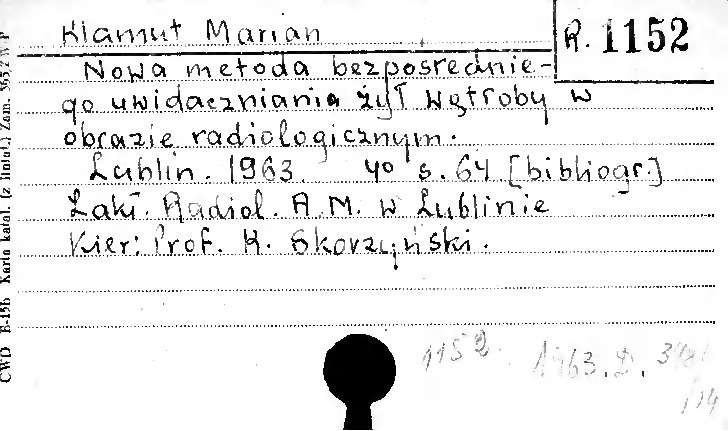 Klamut Marian
R. 1152
Nowa metoda bezpośrednie-
go uwidaczniania żył wątroby w
obrazie radiologicznym.
Lublin. 1963. 4° s. 64 [bibliogr.]
Zakł. Radiol. A. M. w Lublinie
Kier: Prof. K. Skorzyński.
1152. 1963. D.
CWD E-15b Karta katal. (z liniat.) Zam.